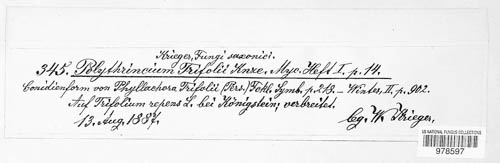 Krieger, Fungi saxonici.
345. Polythrincium Trifolii Knze. Myc. Heft I. p. 14.
Conidienform von Phyllachora Trifolii (Pers.) Fckl. Symb. p. 218 — Winter, II, p. 902.
Auf Trifolium repens L. bei Königstein, verbreitet.
13. Aug. 1887. Lg. W. Krieger.
US NATIONAL FUNGUS COLLECTIONS
978597